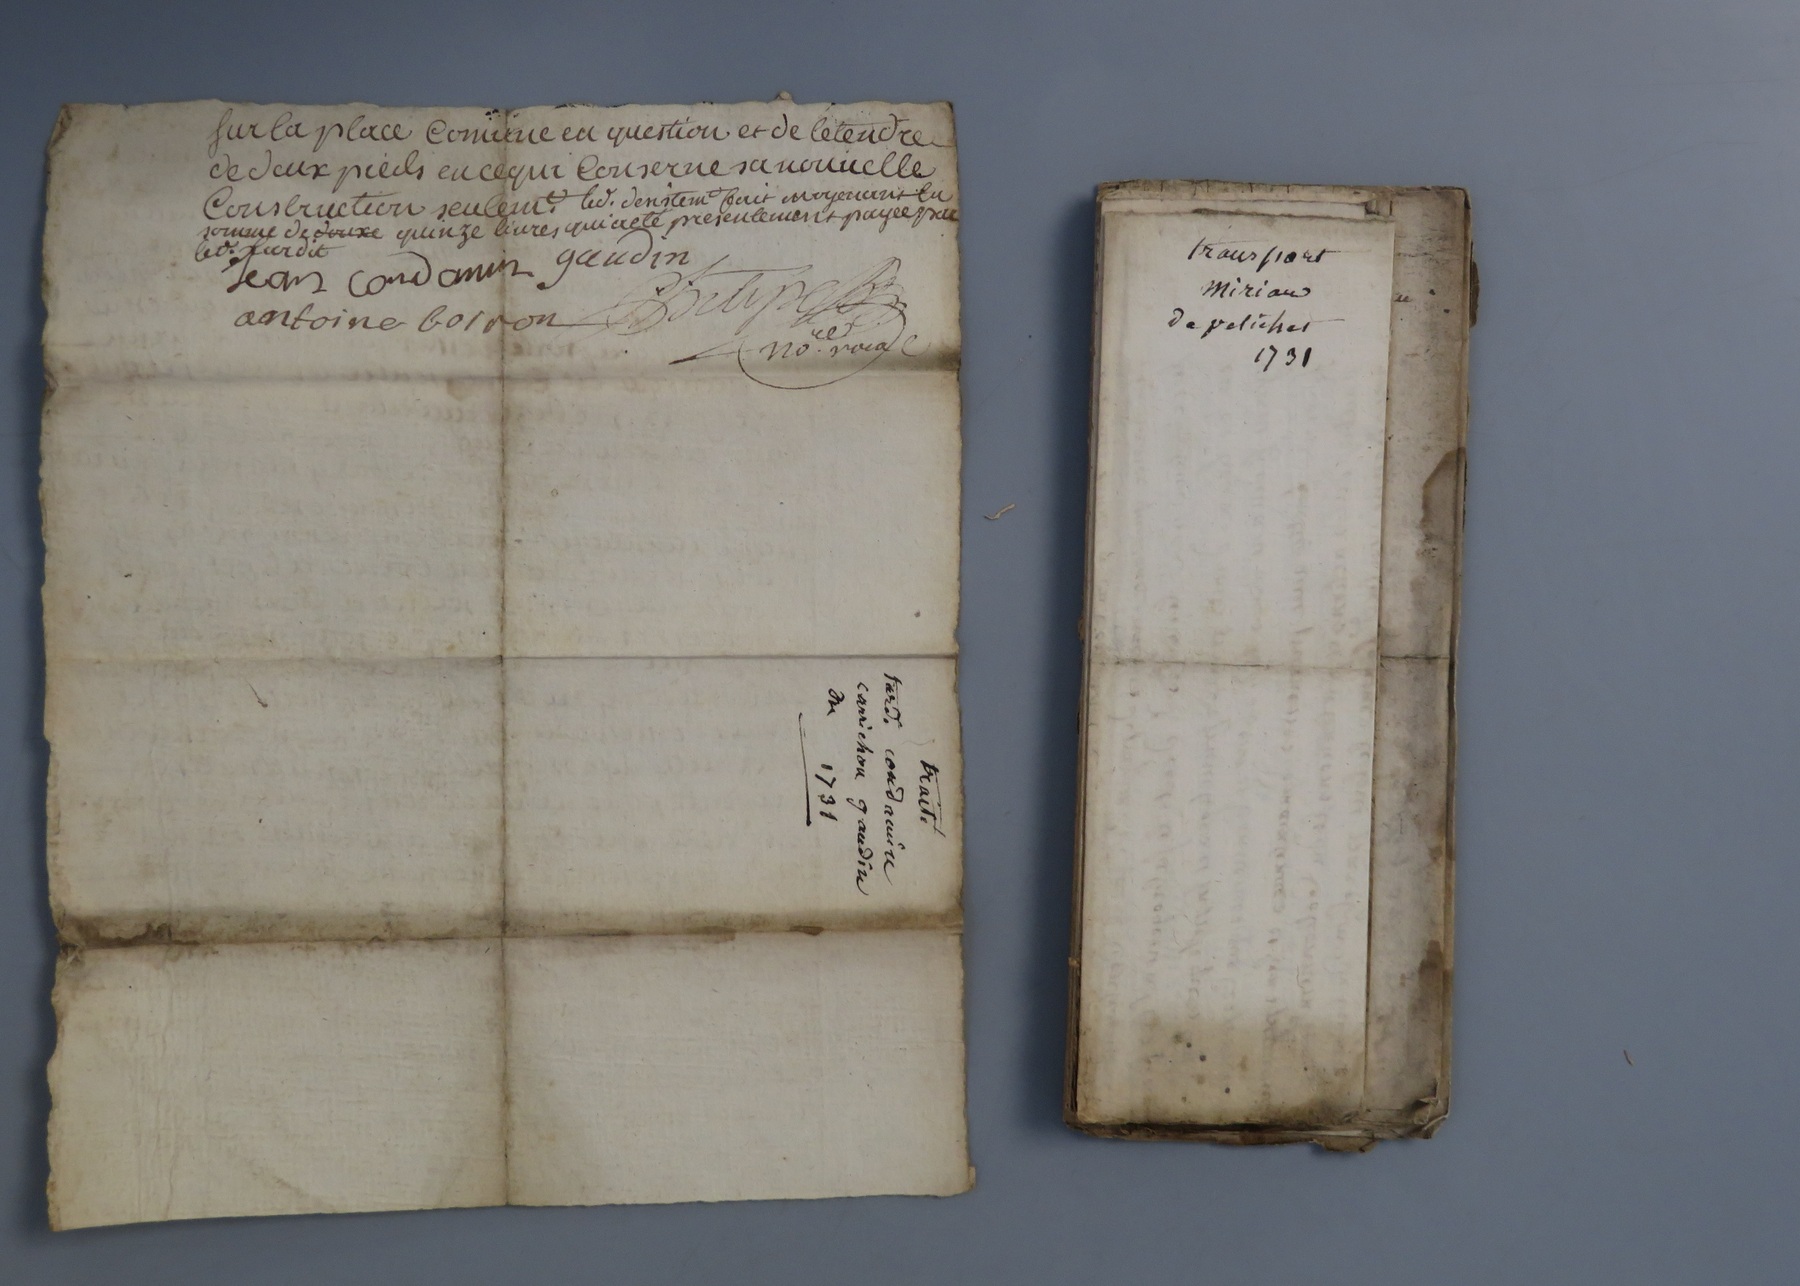 sur la place Comune en question et de letendre
de deux pieds en ce qui Conserne sa nouuelle
Construction seulemt. led. desistemt. fait moyenant la
somme de douze quinze liures qui a eté presentement payee par
led. tardit
Jean condamin gaudin
antoine boiron
nore. roial
traité
tardi condamin
carrichon gaudin
1731
transport
miriau
de pelichet
1731